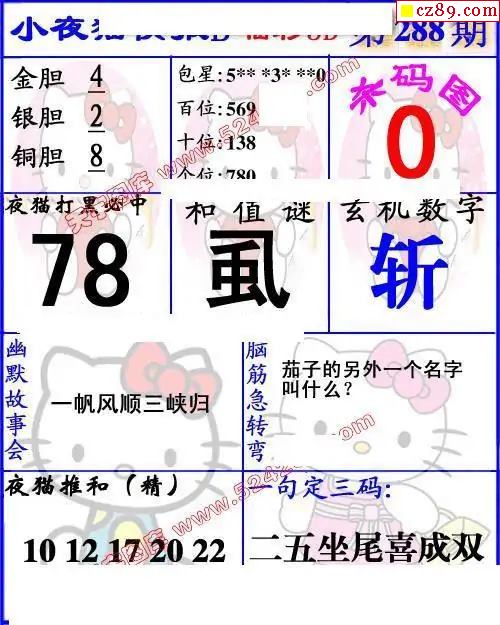 cz89.com
小夜猫
第288期
金胆 4
银胆 2
铜胆 8
包星:5** *3* **0
百位:569
十位:138
个位:780
杀码图
0
夜猫打黑必中
78
和值谜
虱
玄机数字
斩
幽默故事会
一帆风顺三峡归
脑筋急转弯
茄子的另外一个名字
叫什么?
夜猫推和(精)
10 12 17 20 22
一句定三码:
二五坐尾喜成双